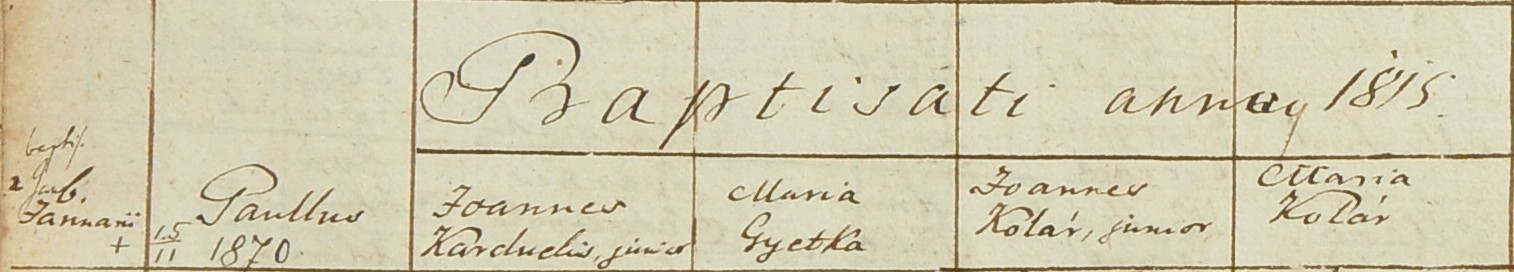 Baptisati anno 1815.
baptis.
2 Jan 6.
Januarii
+
Paullus
15/11 1870.
Joannes
Karduelis, junior
Maria
Gyetka
Joannes
Kolár, junior
Maria
Kolár